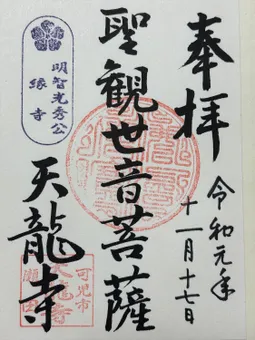 奉拝
令和元年
十一月十七日
聖観世音菩薩
明智光秀公
縁寺
天龍寺
可児市
天龍寺
瀬田